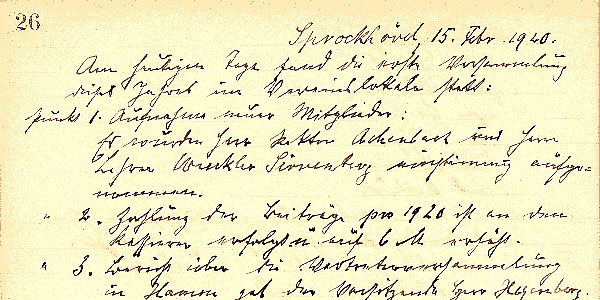 26
Sprockhövel, 15. Febr. 1920.
Am heutigen Tage fand die erste Versammlung
dieses Jahres im Vereinslokale statt:
Punkt 1. Aufnahme neuer Mitglieder:
Es wurden Herr Rektor Achenbach und Herr
Lehrer Winckler einstimmig aufge-
nommen.
" 2. Zahlung der Beiträge pro 1920 ist an den
Kassierer erfolgt u. auf 6 M erhöht.
" 3. Bericht über die Vertreterversammlung
in Hamm gab der Vorsitzende Herr